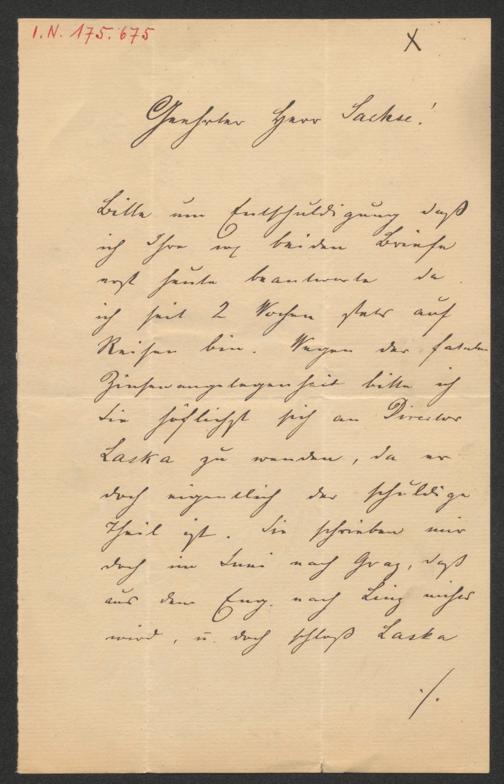 I.N. 175.675
X
Geehrter Herr Sachse!
Bitte um Entschuldigung daß
ich Ihre beiden Briefe
erst heute beantworte da
ich seit 2 Wochen stets auf
Reisen bin. Wegen der fatalen
Zinsenangelegenheit bitte ich
Sie höflichst sich an Director
Laska zu wenden, da er
doch eigentlich der schuldige
Theil ist. Sie schrieben mir
doch im Juni nach Graz, daß
aus dem Eng. nach Linz nichts
wird, u. doch schloß Laska
./.